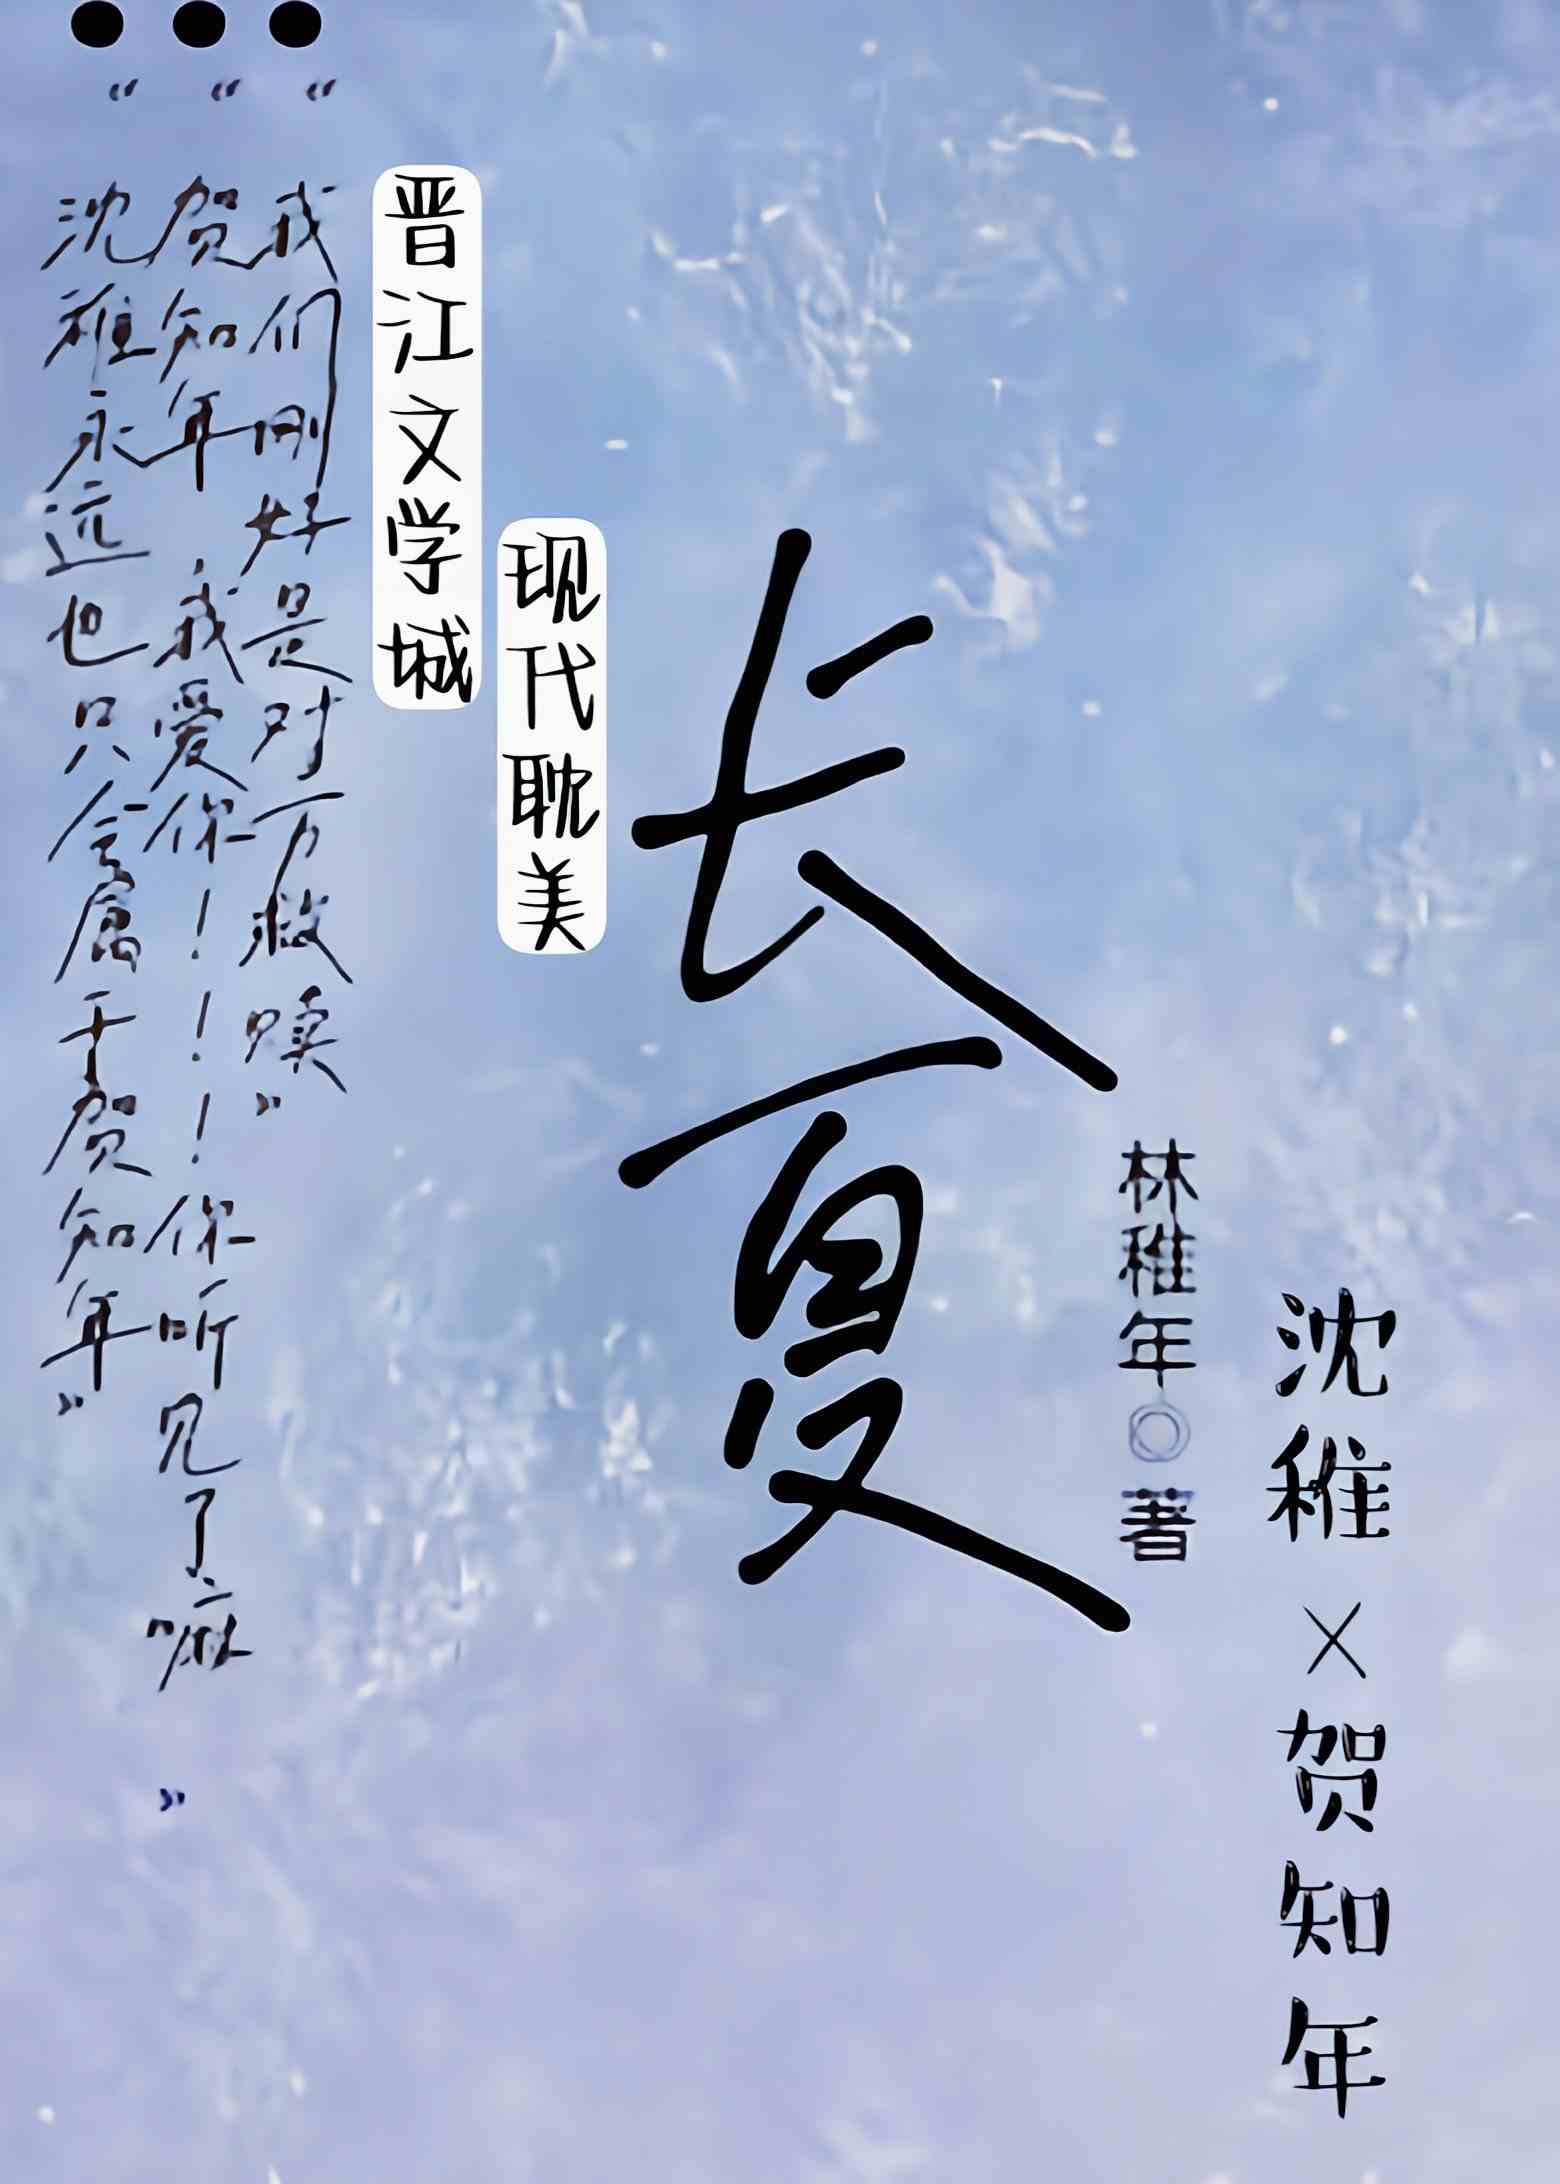 沈稚×贺知年
林稚年◎著
长夏
现代耽美
晋江文学城
“我们刚好是对方救赎”
“贺知年，我爱你！！！你听见了嘛”
“沈稚永远也只会属于贺知年”